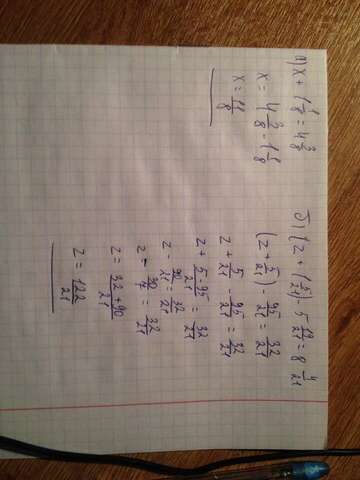 а) x + 1 1/8 = 4 3/8
x = 4 3/8 = 1 1/8
x = 11/8
б) (z + (5/21) - 5 19/21 = 8 4/21
(z + 5/21) - 95/21 = 32/21
z + 5/21 - 95/21 = 32/21
z + 5-95/21 = 32/21
z - 90/21 = 32/21
z - 30/7 = 32/21
z = 32+90/21
z = 122/21